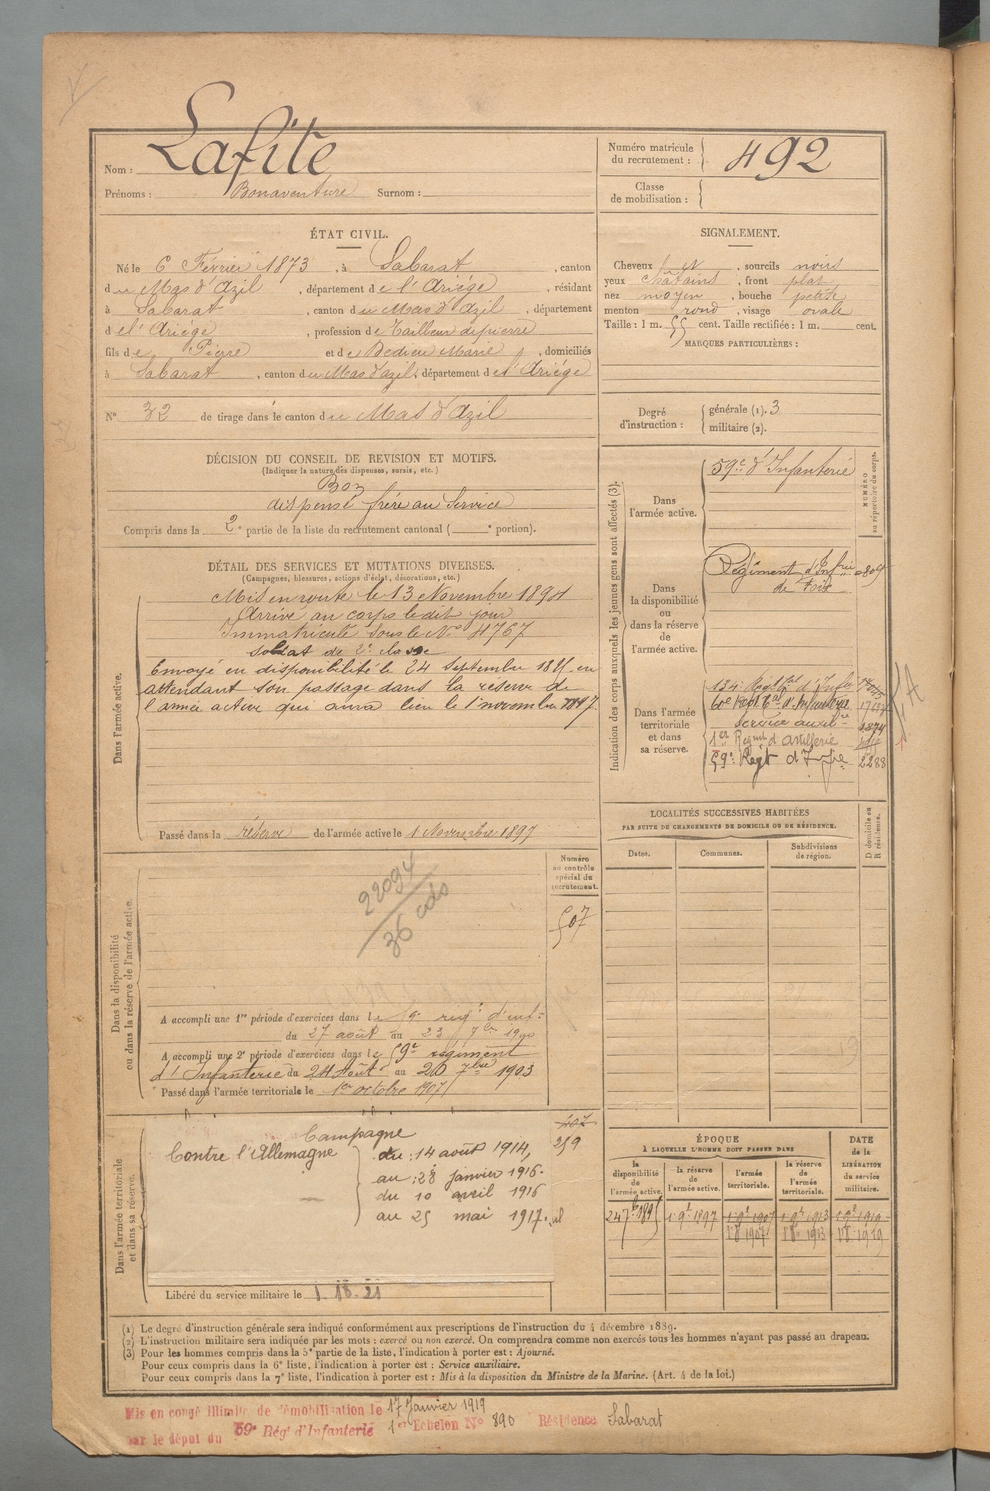 Nom : Lafite
Prénoms : Bonaventure Surnom :
Numéro matricule du recrutement : 492
Classe de mobilisation :
ÉTAT CIVIL.
Né le 6 Février 1873, à Sabarat, canton
du Mas d'Azil, département de l'Ariège, résidant
à Sabarat, canton du Mas d'Azil, département
de l'Ariège, profession de Tailleur de pierre
fils de Pierre et de Dedieu Marie, domiciliés
à Sabarat, canton du Mas d'azil, département de l'Ariège
N° 32 de tirage dans le canton du Mas d'Azil
SIGNALEMENT.
Cheveux et, sourcils noirs
yeux châtains, front plat
nez moyen, bouche petite
menton rond, visage ovale
Taille : 1 m. 55 cent. Taille rectifiée : 1 m. cent.
MARQUES PARTICULIÈRES :
Degré d'instruction : générale (1). 3
militaire (2).
DÉCISION DU CONSEIL DE REVISION ET MOTIFS.
(Indiquer la nature des dispenses, sursis, etc.)
Bon
dispensé frère au Service
Compris dans la 2e partie de la liste du recrutement cantonal ( e portion).
DÉTAIL DES SERVICES ET MUTATIONS DIVERSES.
(Campagnes, blessures, actions d'éclat, décorations, etc.)
Dans l'armée active.
Mis en route le 13 Novembre 1894
Arrivé au corps le dit jour
Immatriculé sous le No 4767
Soldat de 2e classe
Envoyé en disponibilité le 24 Septembre 1895 en
attendant son passage dans la réserve de
l'armée active qui aura lieu le 1 novembre 1897
Passé dans la réserve de l'armée active le 1 Novembre 1897
Indication des corps auxquels les jeunes gens sont affectés (3).
NUMÉRO au répertoire du corps.
Dans l'armée active.
59e d'Infanterie
Dans la disponibilité ou dans la réserve de l'armée active.
Régiment d'Infrie
de Foix
Dans l'armée territoriale et dans sa réserve.
134 Regt tal d'Infie
Service auxil.re 1874
1er Regiment d'artillerie
59e Regt d'Infie 2288
LOCALITÉS SUCCESSIVES HABITÉES
PAR SUITE DE CHANGEMENTS DE DOMICILE OU DE RÉSIDENCE.
Dates. Communes. Subdivisions de région. D domicile ou R résidence.
Dans la disponibilité ou dans la réserve de l'armée active.
Numéro au contrôle spécial du recrutement.
507
22094
36 cdo
A accompli une 1re période d'exercices dans le 59e régt d'inf.ie
du 27 août au 23 7bre 1900
A accompli une 2e période d'exercices dans le 59e régiment
d'Infanterie du 24 Août au 20 7bre 1903
Passé dans l'armée territoriale le 1er octobre 1907
Dans l'armée territoriale et dans sa réserve.
259
Campagne
Contre l'Allemagne du : 14 août 1914,
au : 28 janvier 1916.
du 10 avril 1916
au 25 mai 1917.
Libéré du service militaire le
ÉPOQUE
À LAQUELLE L'HOMME DOIT PASSER DANS
la disponibilité de l'armée active. la réserve de l'armée active. l'armée territoriale. la réserve de l'armée territoriale.
DATE de la LIBÉRATION du service militaire.
24 7b 1895 1 9b 1897 1 9b 1907 1 9b 1913 1 9b 1919
1 8b 1907 1 8b 1913 1 8b 1919
(1) Le degré d'instruction générale sera indiqué conformément aux prescriptions de l'instruction du 4 décembre 1889.
(2) L'instruction militaire sera indiquée par les mots : exercé ou non exercé. On comprendra comme non exercés tous les hommes n'ayant pas passé au drapeau.
(3) Pour les hommes compris dans la 5e partie de la liste, l'indication à porter est : Ajourné.
Pour ceux compris dans la 6e liste, l'indication à porter est : Service auxiliaire.
Pour ceux compris dans la 7e liste, l'indication à porter est : Mis à la disposition du Ministre de la Marine. (Art. 4 de la loi.)
Mis en congé illimité de démobilisation le 17 Janvier 1919
par le dépôt du 59e Régt d'Infanterie 1er Echelon N° 890 Résidence Sabarat